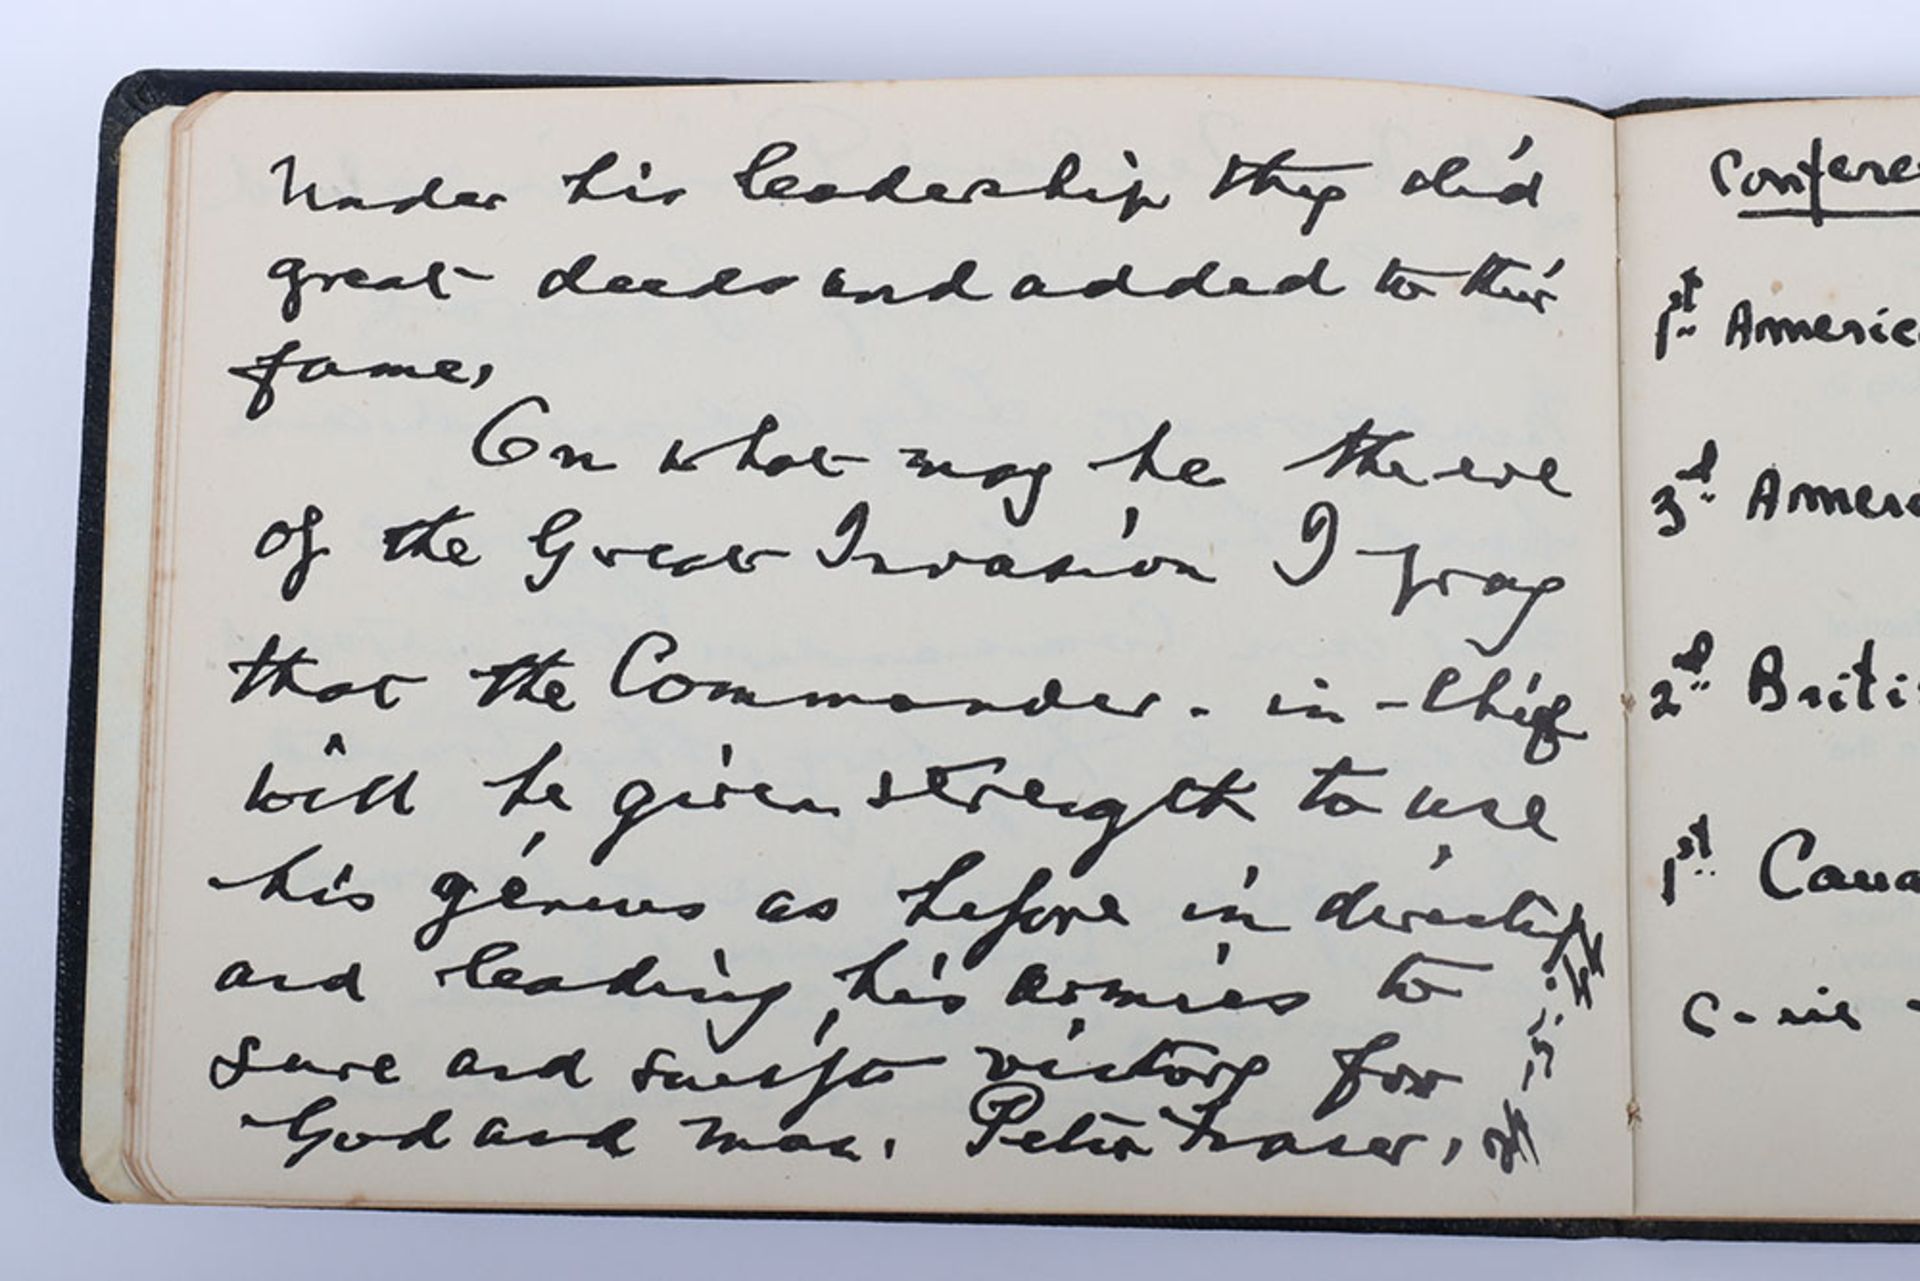 Under his leadership they did
great deeds and added to their
fame.
On what may be the eve
of the Great Invasion I pray
that the Commander-in-Chief
will be given strength to use
his genius as before in directing
and leading his armies to
sure and swift victory for
God and man. Peter Fraser,
Conferen
1st Americ
3rd Ameri
2nd Briti
1st Cana
C-in-C